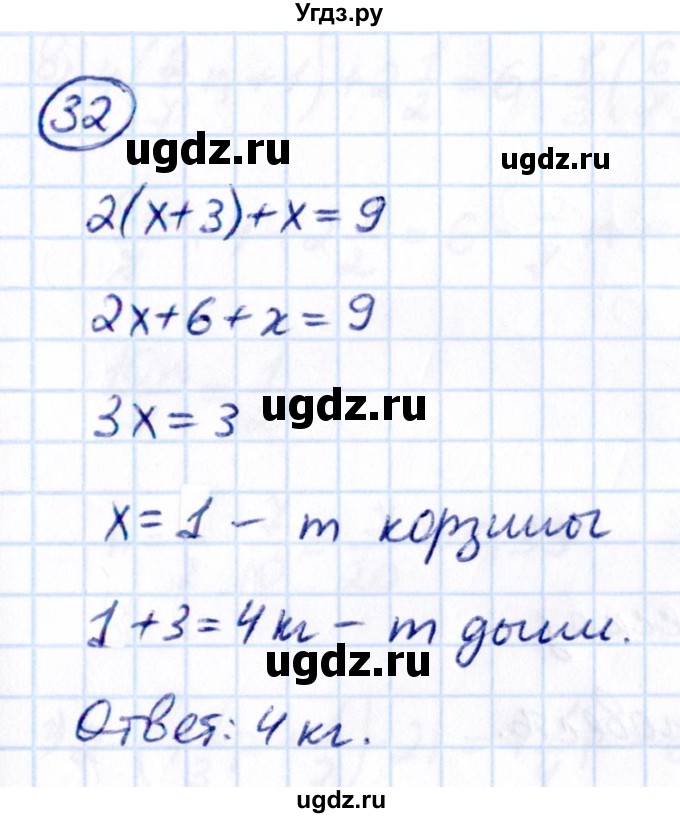 Угдз.ру
32
ugdz.ru
ugdz.ru
2(x+3)+x=9
2x+6+x=9
3x=3
ugdz.ru
x=1 – m корзины
1+3=4кг – m дыни.
ugdz.ru
Ответ: 4 кг.
ugdz.ru